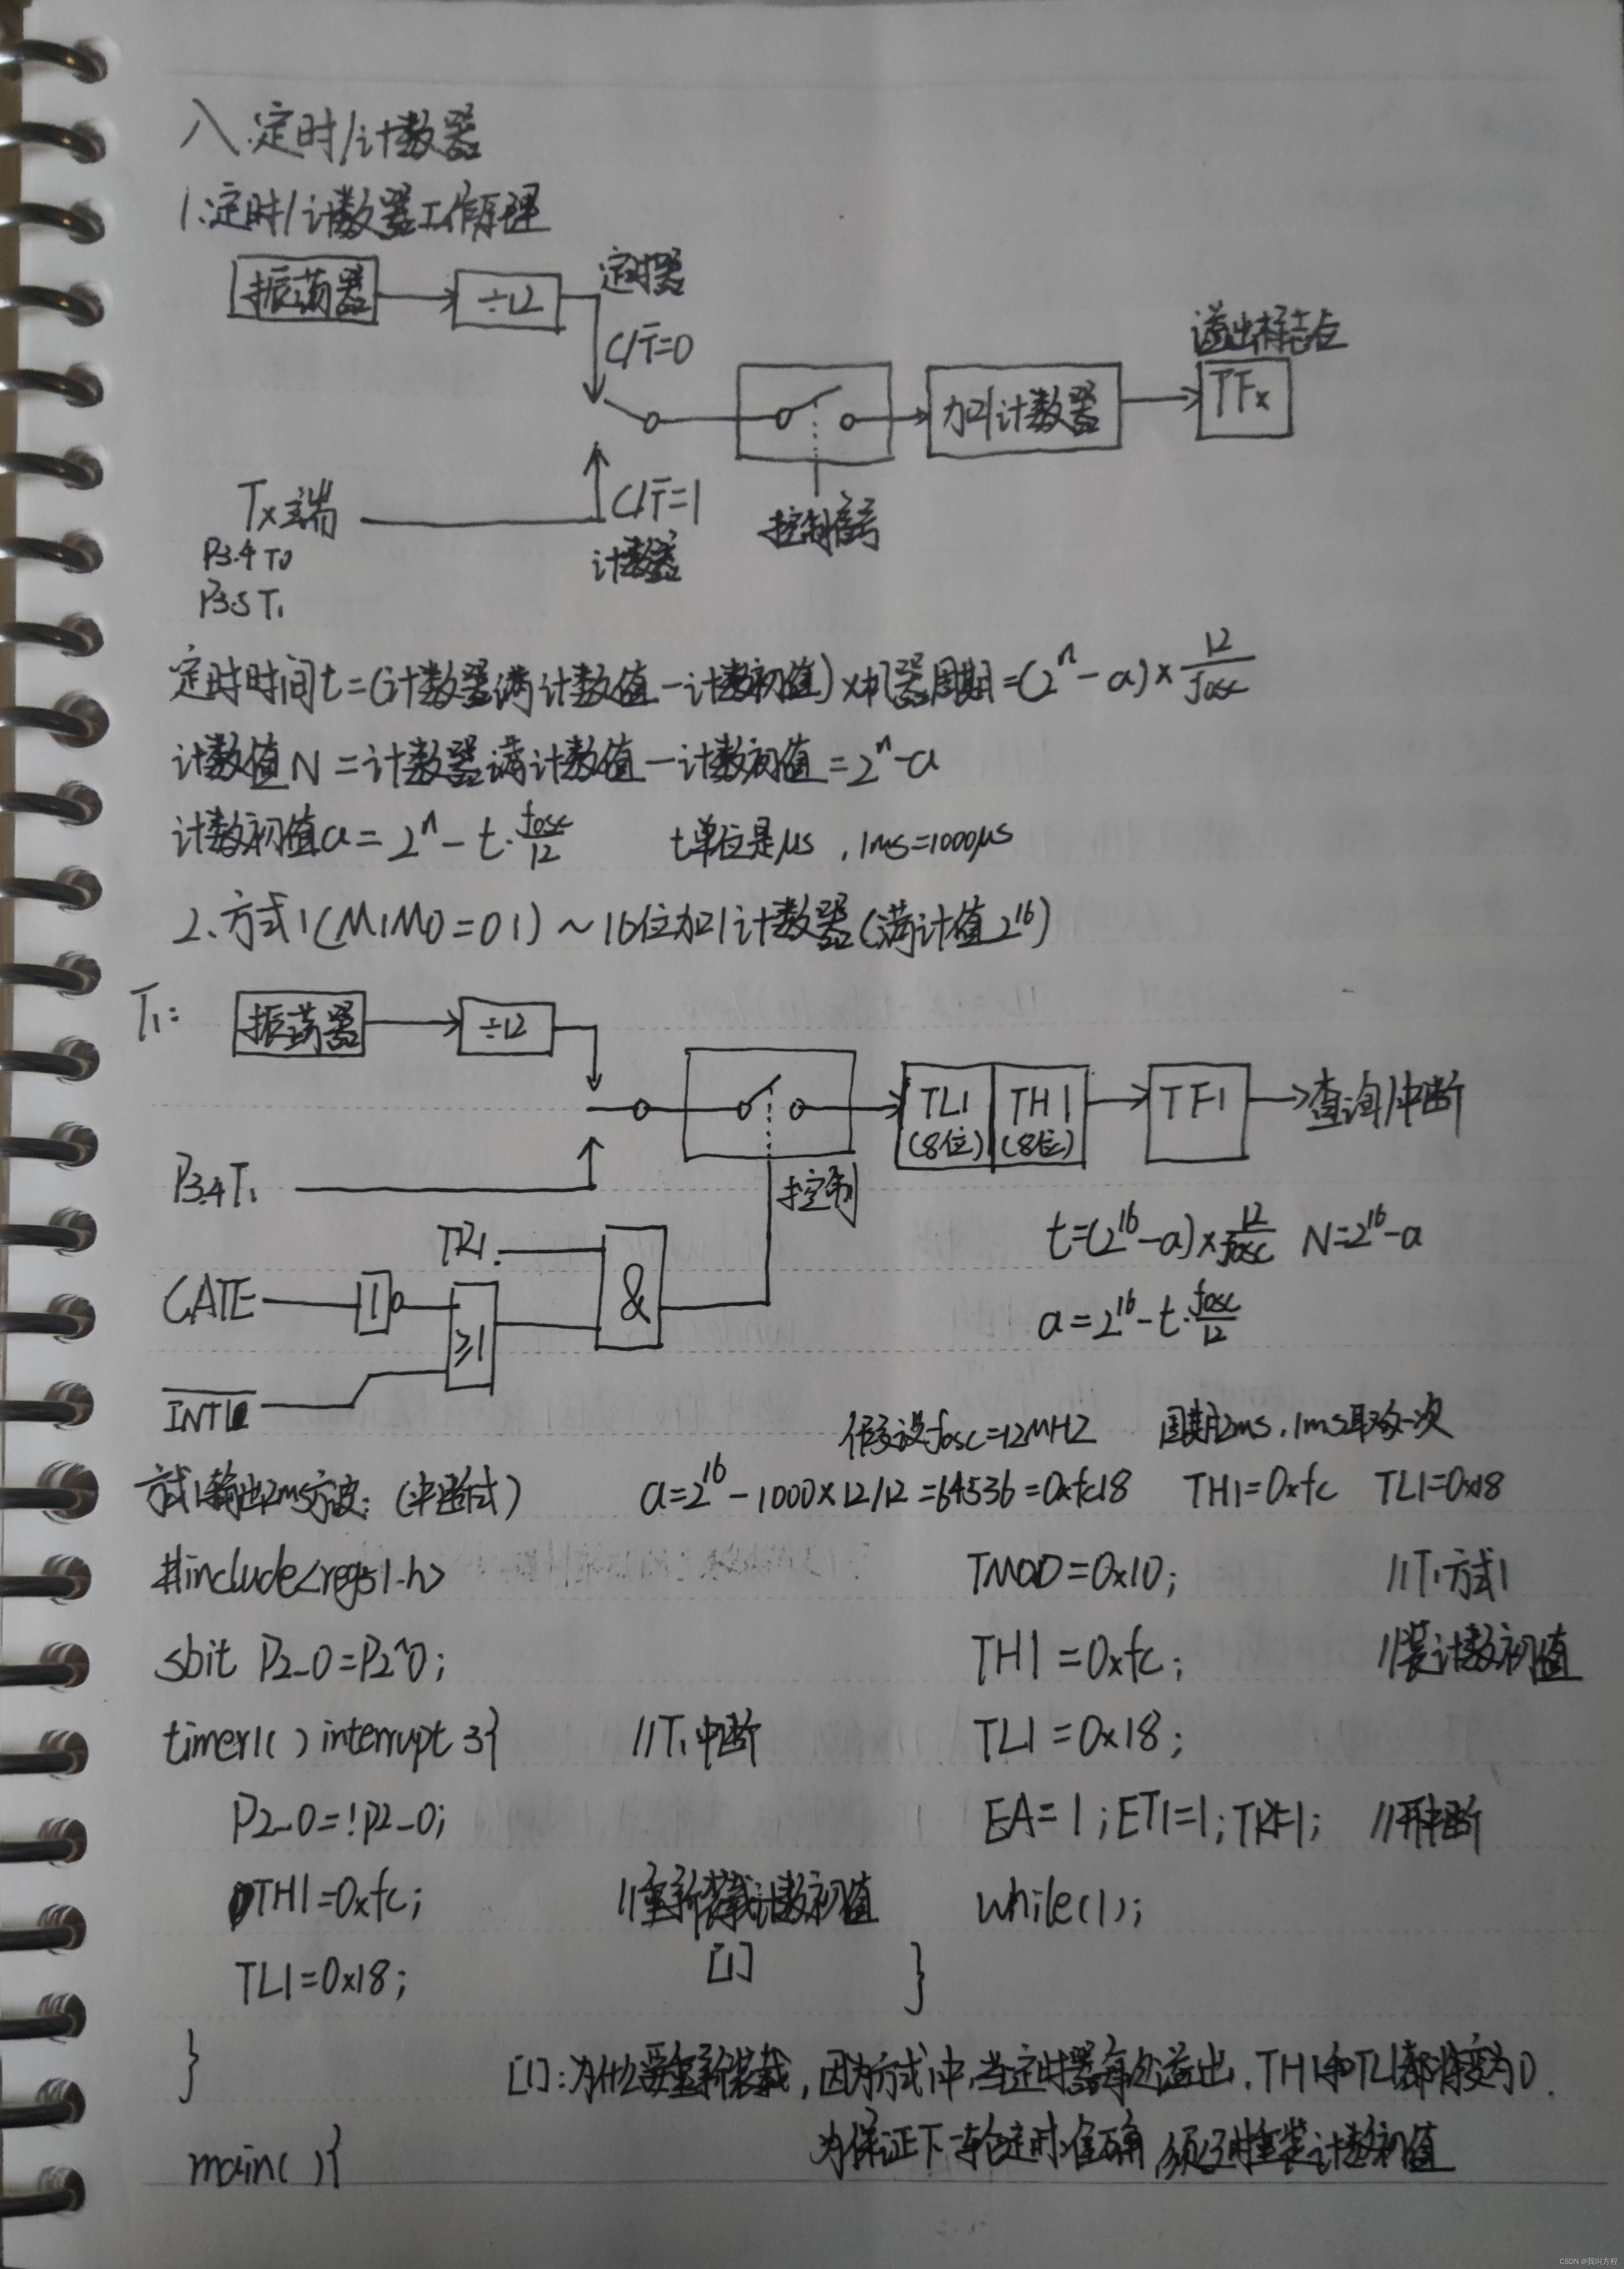 八.定时/计数器
1.定时/计数器工作原理
振荡器 ÷12 定时器
C/T̅=0
溢出标志位
加1计数器 TFx
Tx端 C/T̅=1
计数器 控制信号
P3.4 T0
P3.5 T1
定时时间t=(计数器满计数值-计数初值)×机器周期=(2ⁿ-a)×12/fosc
计数值N=计数器满计数值-计数初值=2ⁿ-a
计数初值a=2ⁿ-t·fosc/12 t单位是μs,1ms=1000μs
2.方式1(M1M0=01)~16位加1计数器(满计值2¹⁶)
T1: 振荡器 ÷12
TL1 (8位) TH1 (8位) TF1 查询/中断
P3.4T1 控制
t=(2¹⁶-a)×12/fosc N=2¹⁶-a
TR1
GATE 1 ≥1 &
a=2¹⁶-t·fosc/12
INT1
假设fosc=12MHZ 周期2ms,1ms取反一次
方式1输出2ms方波:(中断式) a=2¹⁶-1000×12/12=64536=0xfc18 TH1=0xfc TL1=0x18
#include<reg51.h>
sbit P2_0=P2^0;
timer1() interrupt 3{ //T1中断
P2_0=!P2_0;
TH1=0xfc; //重新装载计数初值
TL1=0x18; [1]
}
main(){
TMOD=0x10; //T1方式1
TH1=0xfc; //装计数初值
TL1=0x18;
EA=1;ET1=1;TR1=1; //开中断
while(1);
}
[1]:为什么要重新装载,因为方式1中,当定时器每次溢出,TH1和TL1都将变为0.
为保证下一轮定时准确 须及时重装计数初值
CSDN @我叫方程